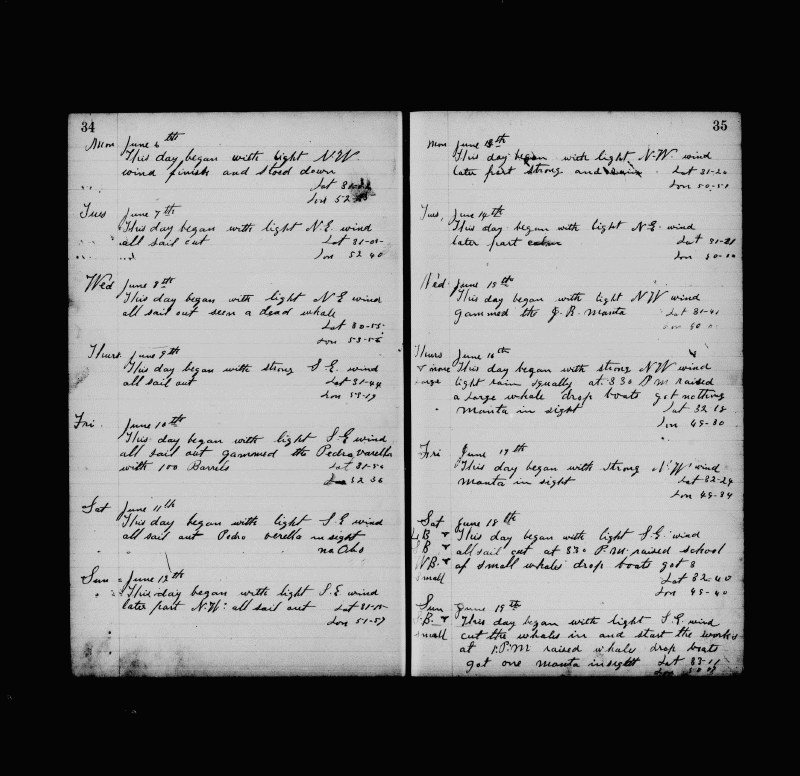 34
Mon June 6th
This day began with light N.W.
wind finish and stood down
Lat 31-
Lon 52
Tues June 7th
This day began with light N.E. wind
all sail out Lat 31-05
Lon 52 40
Wed June 8th
This day began with light N E wind
all sail out seen a dead whale
Lat 30-55
Lon 53-56
Thurs June 9th
This day began with strong S.E. wind
all sail out Lat 31-44
Lon 53-19
Fri June 10th
This day began with light S-E wind
all sail out gammed the Pedro varella
with 100 Barrels Lat 31-50
52 36
Sat June 11th
This day began with light S.E wind
all sail out Pedro verella in sight
no Obs
Sun June 12th
This day began with light S.E wind
later part N.W. all sail out Lat 31-15
Lon 51-57
35
Mon June 13th
This day began with light N.W. wind
later part strong and rain Lat 31-20
Lon 50-51
Tues, June 14th
This day began with light N.E. wind
later part calm Lat 31-21
Lon 50-50
Wed June 15th
This day began with light N W wind
gammed the J. R. Manta Lat 31-41
Lon 50
Thurs June 16th
This day began with strong N W wind
Large light rain squally at 8 30 P M raised
a Large whale drop boats got nothing
Manta in sight Lat 32 18
Lon 49-30
Fri June 17th
This day began with strong N.W. wind
Manta in sight Lat 32-24
Lon 49-34
Sat June 18th
B This day began with light S.E. wind
B all sail out at 8 30 P.M. raised school
W B of small whales drop boats got 3
small Lat 32-40
Lon 49-40
Sun June 19th
B This day began with light S.E. wind
small cut the whales in and start the works
at 1.P.M raised whale drop boats
got one Manta in sight Lat 33-11
Lon